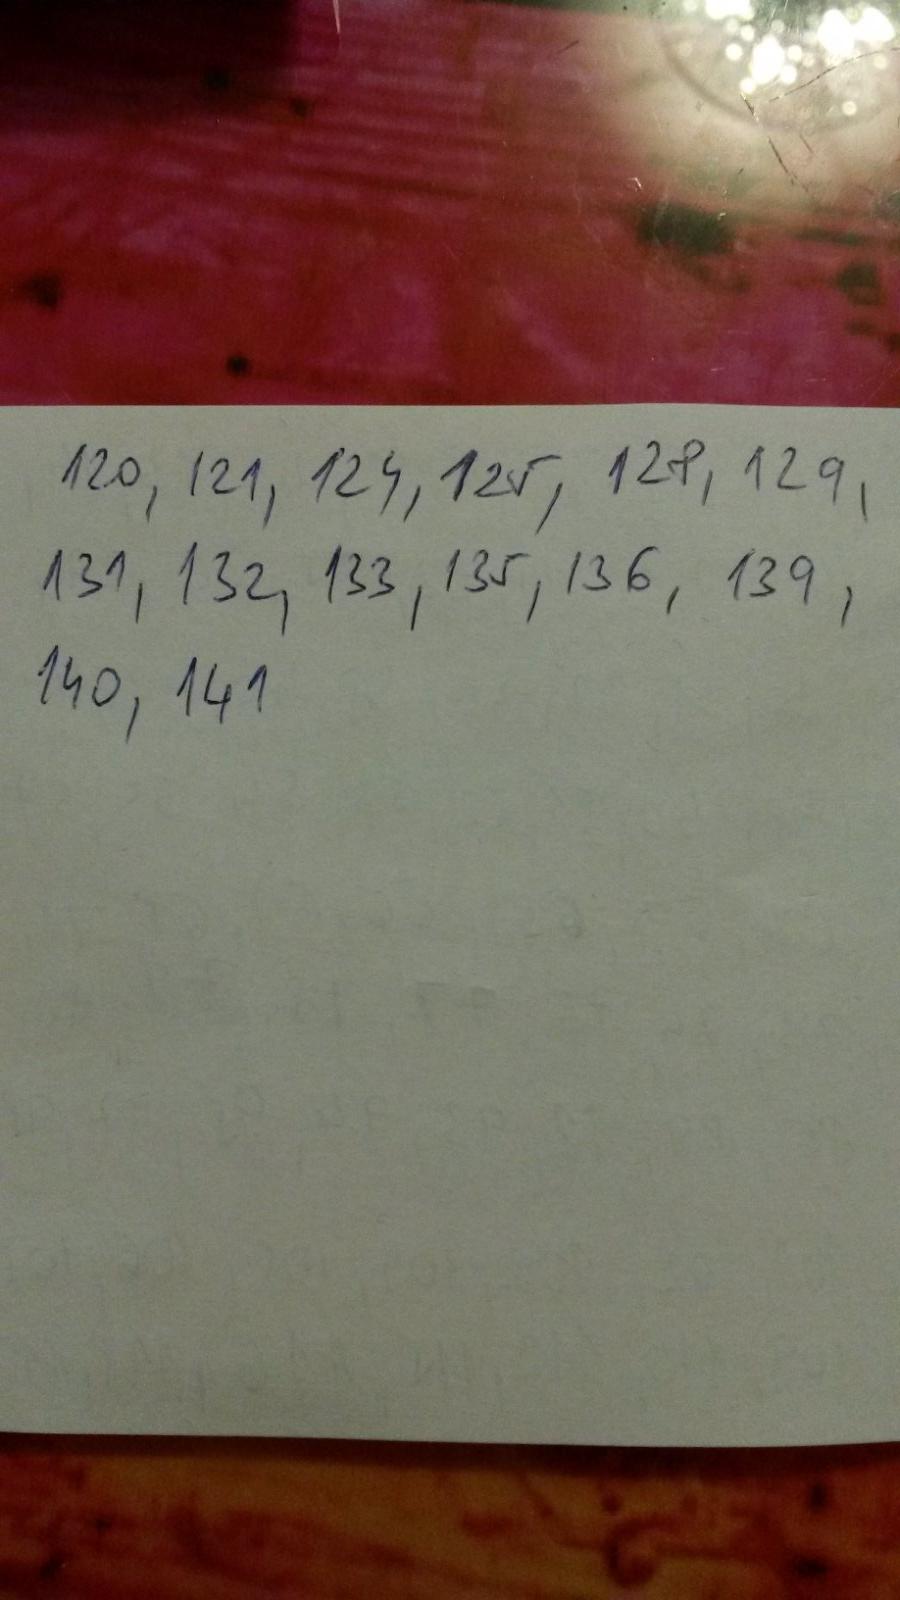 120, 121, 124, 125, 128, 129,
131, 132, 133, 135, 136, 139,
140, 141